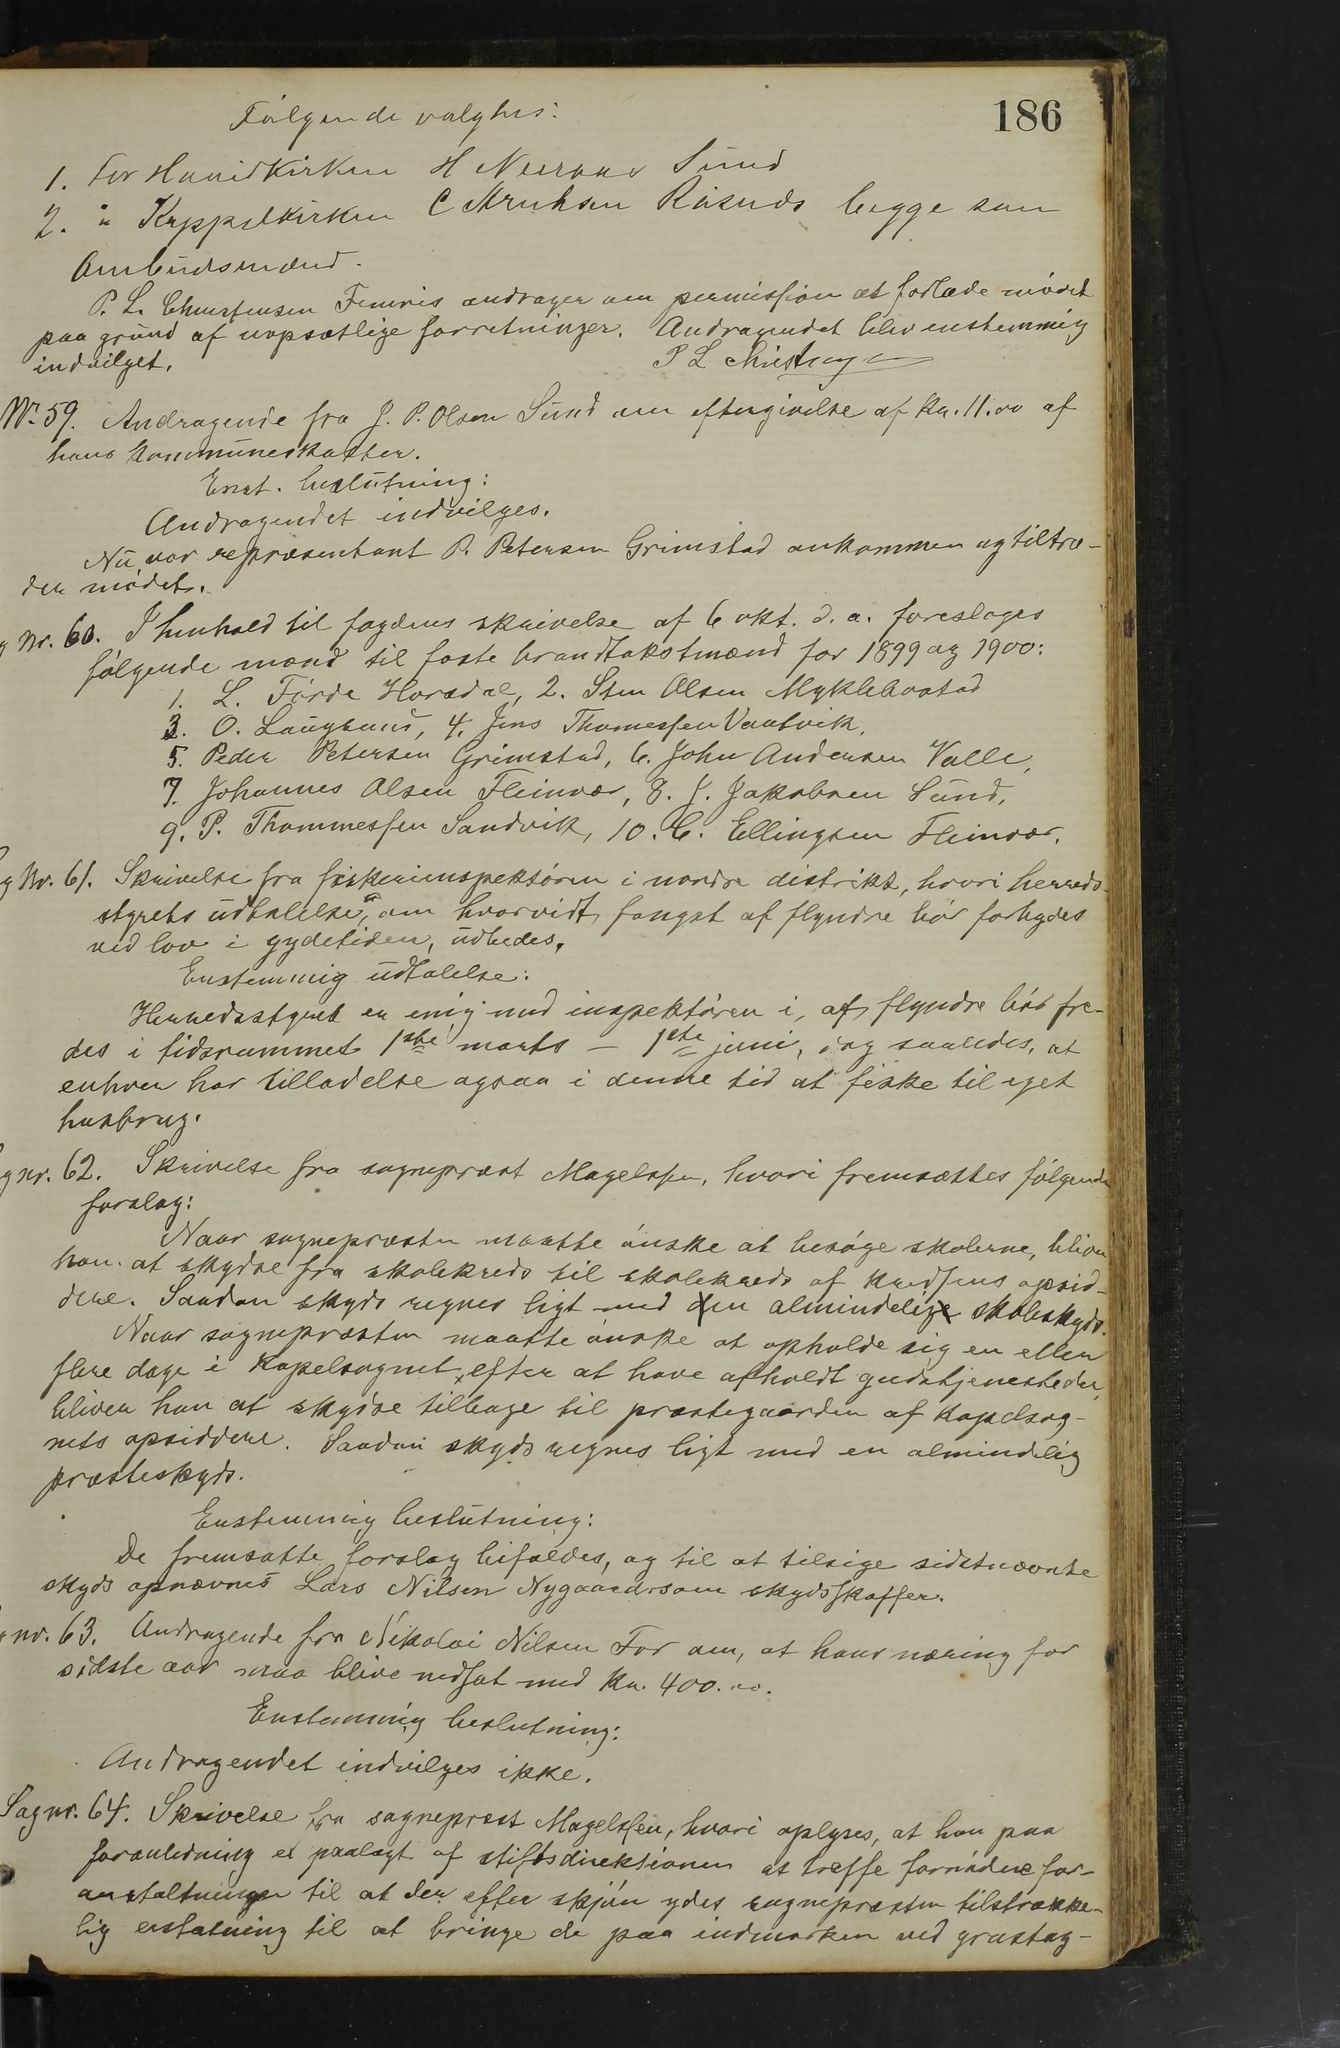 186
Følgende valgtes:
1. For Hovedkirken H Sund
2. " Kappelkirken C begge som
Ombudsmænd.
P. L. Christensen andrager om permission at forlade mödet
paa grund af uopsætlige forretninger. Andragendet blev enstemmig
indvilget. P L
Nr. 59. Andragende fra J. P. Olsen Sund om eftergivelse af kr. 11.00 af
hans kommuneskatter.
Enst. beslutning:
Andragendet indvilges.
Nu var repræsentant P. Petersen Grimstad ankommen og tiltræ-
der mödet.
g Nr. 60. I henhold til fogdens skrivelse af 6 okt. d. a. foreslages
fölgende mænd til faste brandtakstmænd for 1899 og 1900:
1. L. Förde Horsdal, 2. Sten Olsen Myklebostad
3. O. 4. Jens Thomessen
5. Peder Petersen Grimstad, 6. John Andersen Valle,
7. Johannes Olsen Fleinvær, 8. J. Jakobsen Sund,
9. P. Thommessen Sandvik, 10. C. Ellingsen Fleinvær.
g Nr. 61. Skrivelse fra fiskeriinspektören i nordre distrikt, hvori herreds-
styrets udtalelse om hvorvidt fangst af flyndre bör forbydes
ved lov i gydetiden, udbedes.
Enstemmig udtalelse:
Herredsstyret er enig med inspektören i, at flyndre bör fre-
des i tidsrummet 1ste marts – 1ste juni, dog saaledes, at
enhver har tilladelse ogsaa i denne tid at fiske til eget
husbrug.
g nr. 62. Skrivelse fra sognepræst Magelssen, hvori fremsættes fölgende
forslag:
Naar sognepræsten maatte önske at besöge skolerne, bliver
han at skydse fra skolekreds til skolekreds af kredsens opsid-
dere. Saadan skyds regnes ligt med den almindelige skoleskyds.
Naar sognepræsten maatte önske at opholde sig en eller
flere dage i kapelsognet, efter at have afholdt gudstjenesteder,
bliver han at skydse tilbage til præstegaarden af kapelsog-
nets opsiddere. Saadan skyds regnes ligt med en almindelig
præsteskyds.
Enstemmig beslutning:
De fremsatte forslag bifaldes, og til at tilsige sidstnævnte
skyds opnævnes Lars Nilsen Nygaard som skydsskaffer.
g nr. 63. Andragende fra Nikolai Nilsen For om, at hans næring for
sidste aar maa blive nedsat med kr. 400.00.
Enstemmig beslutning:
Andragendet indvilges ikke.
Sag nr. 64. Skrivelse fra sogneprest Magelssen, hvori oplyses, at han paa
foranledning er paalagt af stiftsdirektionen at træffe fornödne for-
anstaltninger til at der efter skjön ydes sognepræsten tilstrække-
lig erstatning til at bringe de paa indmarken ved græstag-